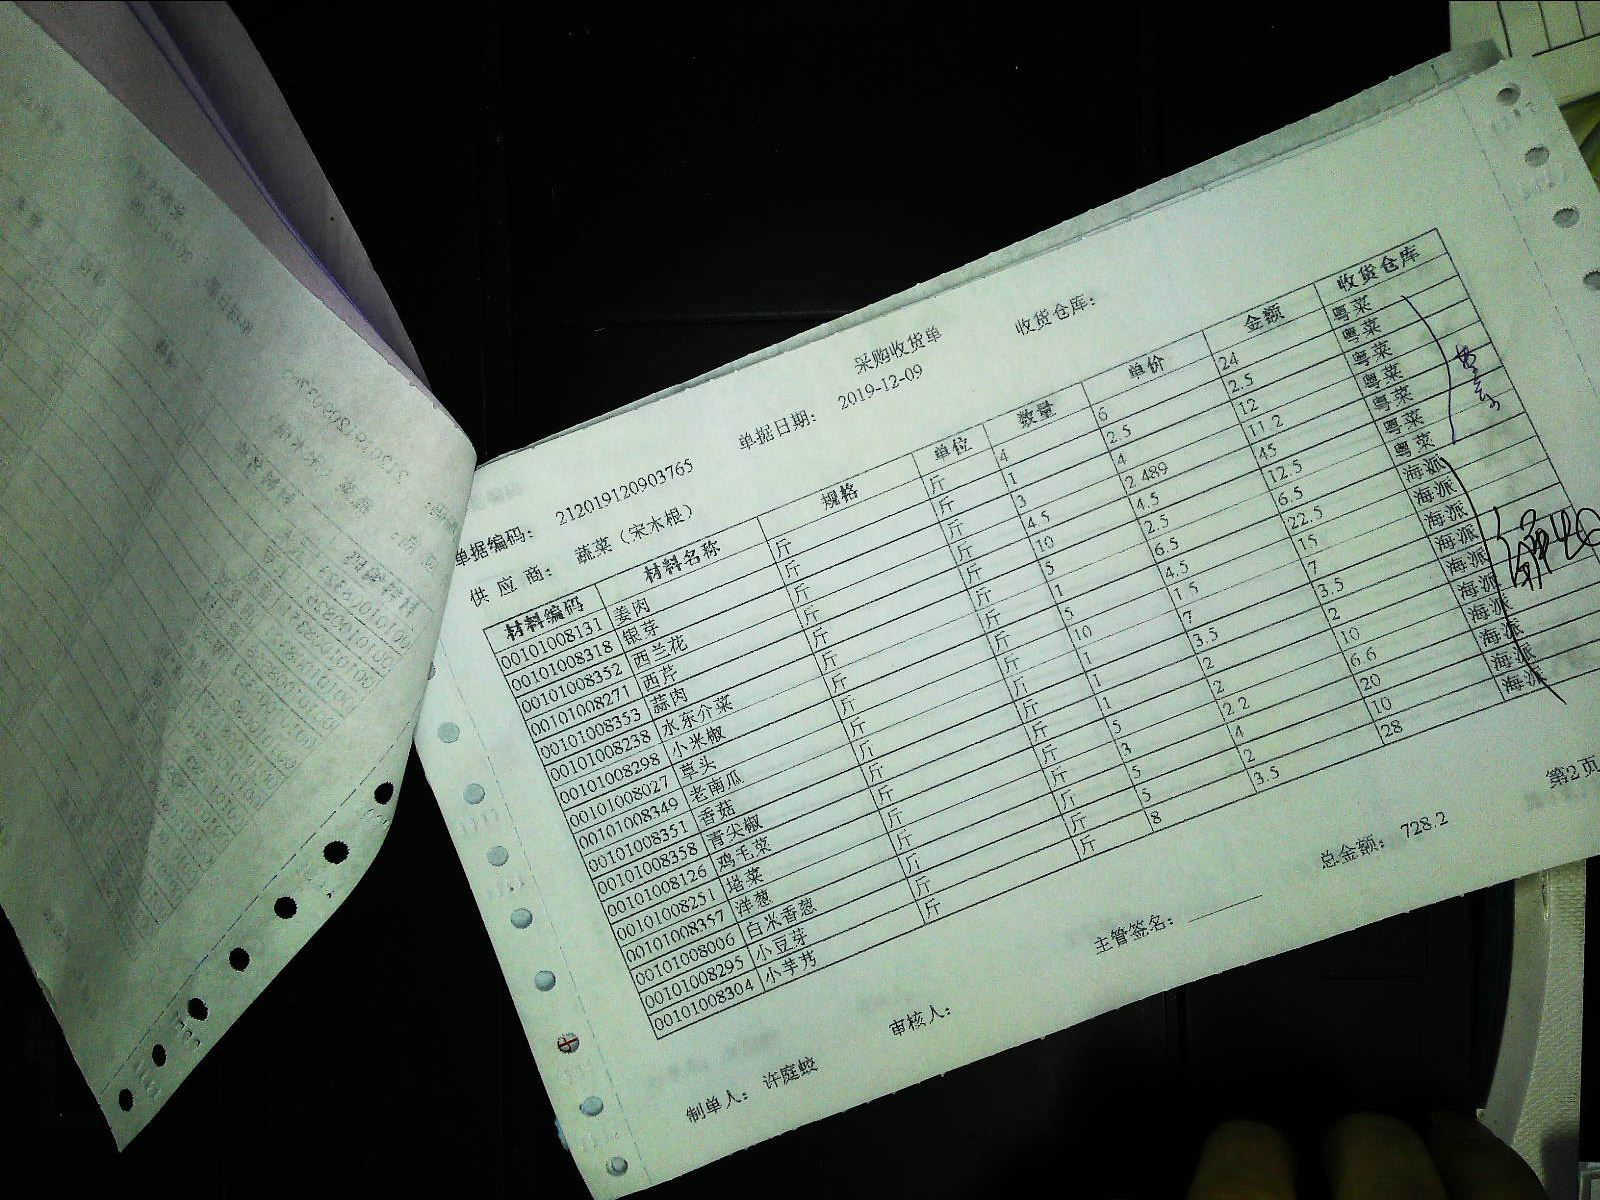 采购收货单
单据编码: 212019120903765 单据日期: 2019-12-09 收货仓库:
供应商: 蔬菜（宋木根）
材料编码 材料名称 规格 单位 数量 单价 金额 收货仓库
00101008131 姜肉 斤 斤 4 6 24 粤菜
00101008318 银芽 斤 斤 1 2.5 2.5 粤菜
00101008352 西兰花 斤 斤 3 4 12 粤菜
00101008271 西芹 斤 斤 4.5 2.489 11.2 粤菜
00101008353 蒜肉 斤 斤 10 4.5 45 粤菜
00101008238 水东介菜 斤 斤 5 2.5 12.5 粤菜
00101008298 小米椒 斤 斤 1 6.5 6.5 粤菜
00101008027 草头 斤 斤 5 4.5 22.5 海派
00101008349 老南瓜 斤 斤 10 1.5 15 海派
00101008351 香菇 斤 斤 1 7 7 海派
00101008358 青尖椒 斤 斤 1 3.5 3.5 海派
00101008126 鸡毛菜 斤 斤 1 2 2 海派
00101008251 塔菜 斤 斤 5 2 10 海派
00101008357 洋葱 斤 斤 3 2.2 6.6 海派
00101008006 白米香葱 斤 斤 5 4 20 海派
00101008295 小豆芽 斤 斤 5 2 10 海派
00101008304 小芋艿 斤 斤 8 3.5 28 海派
第2页
制单人: 许庭蛟 审核人: 主管签名: 总金额: 728.2